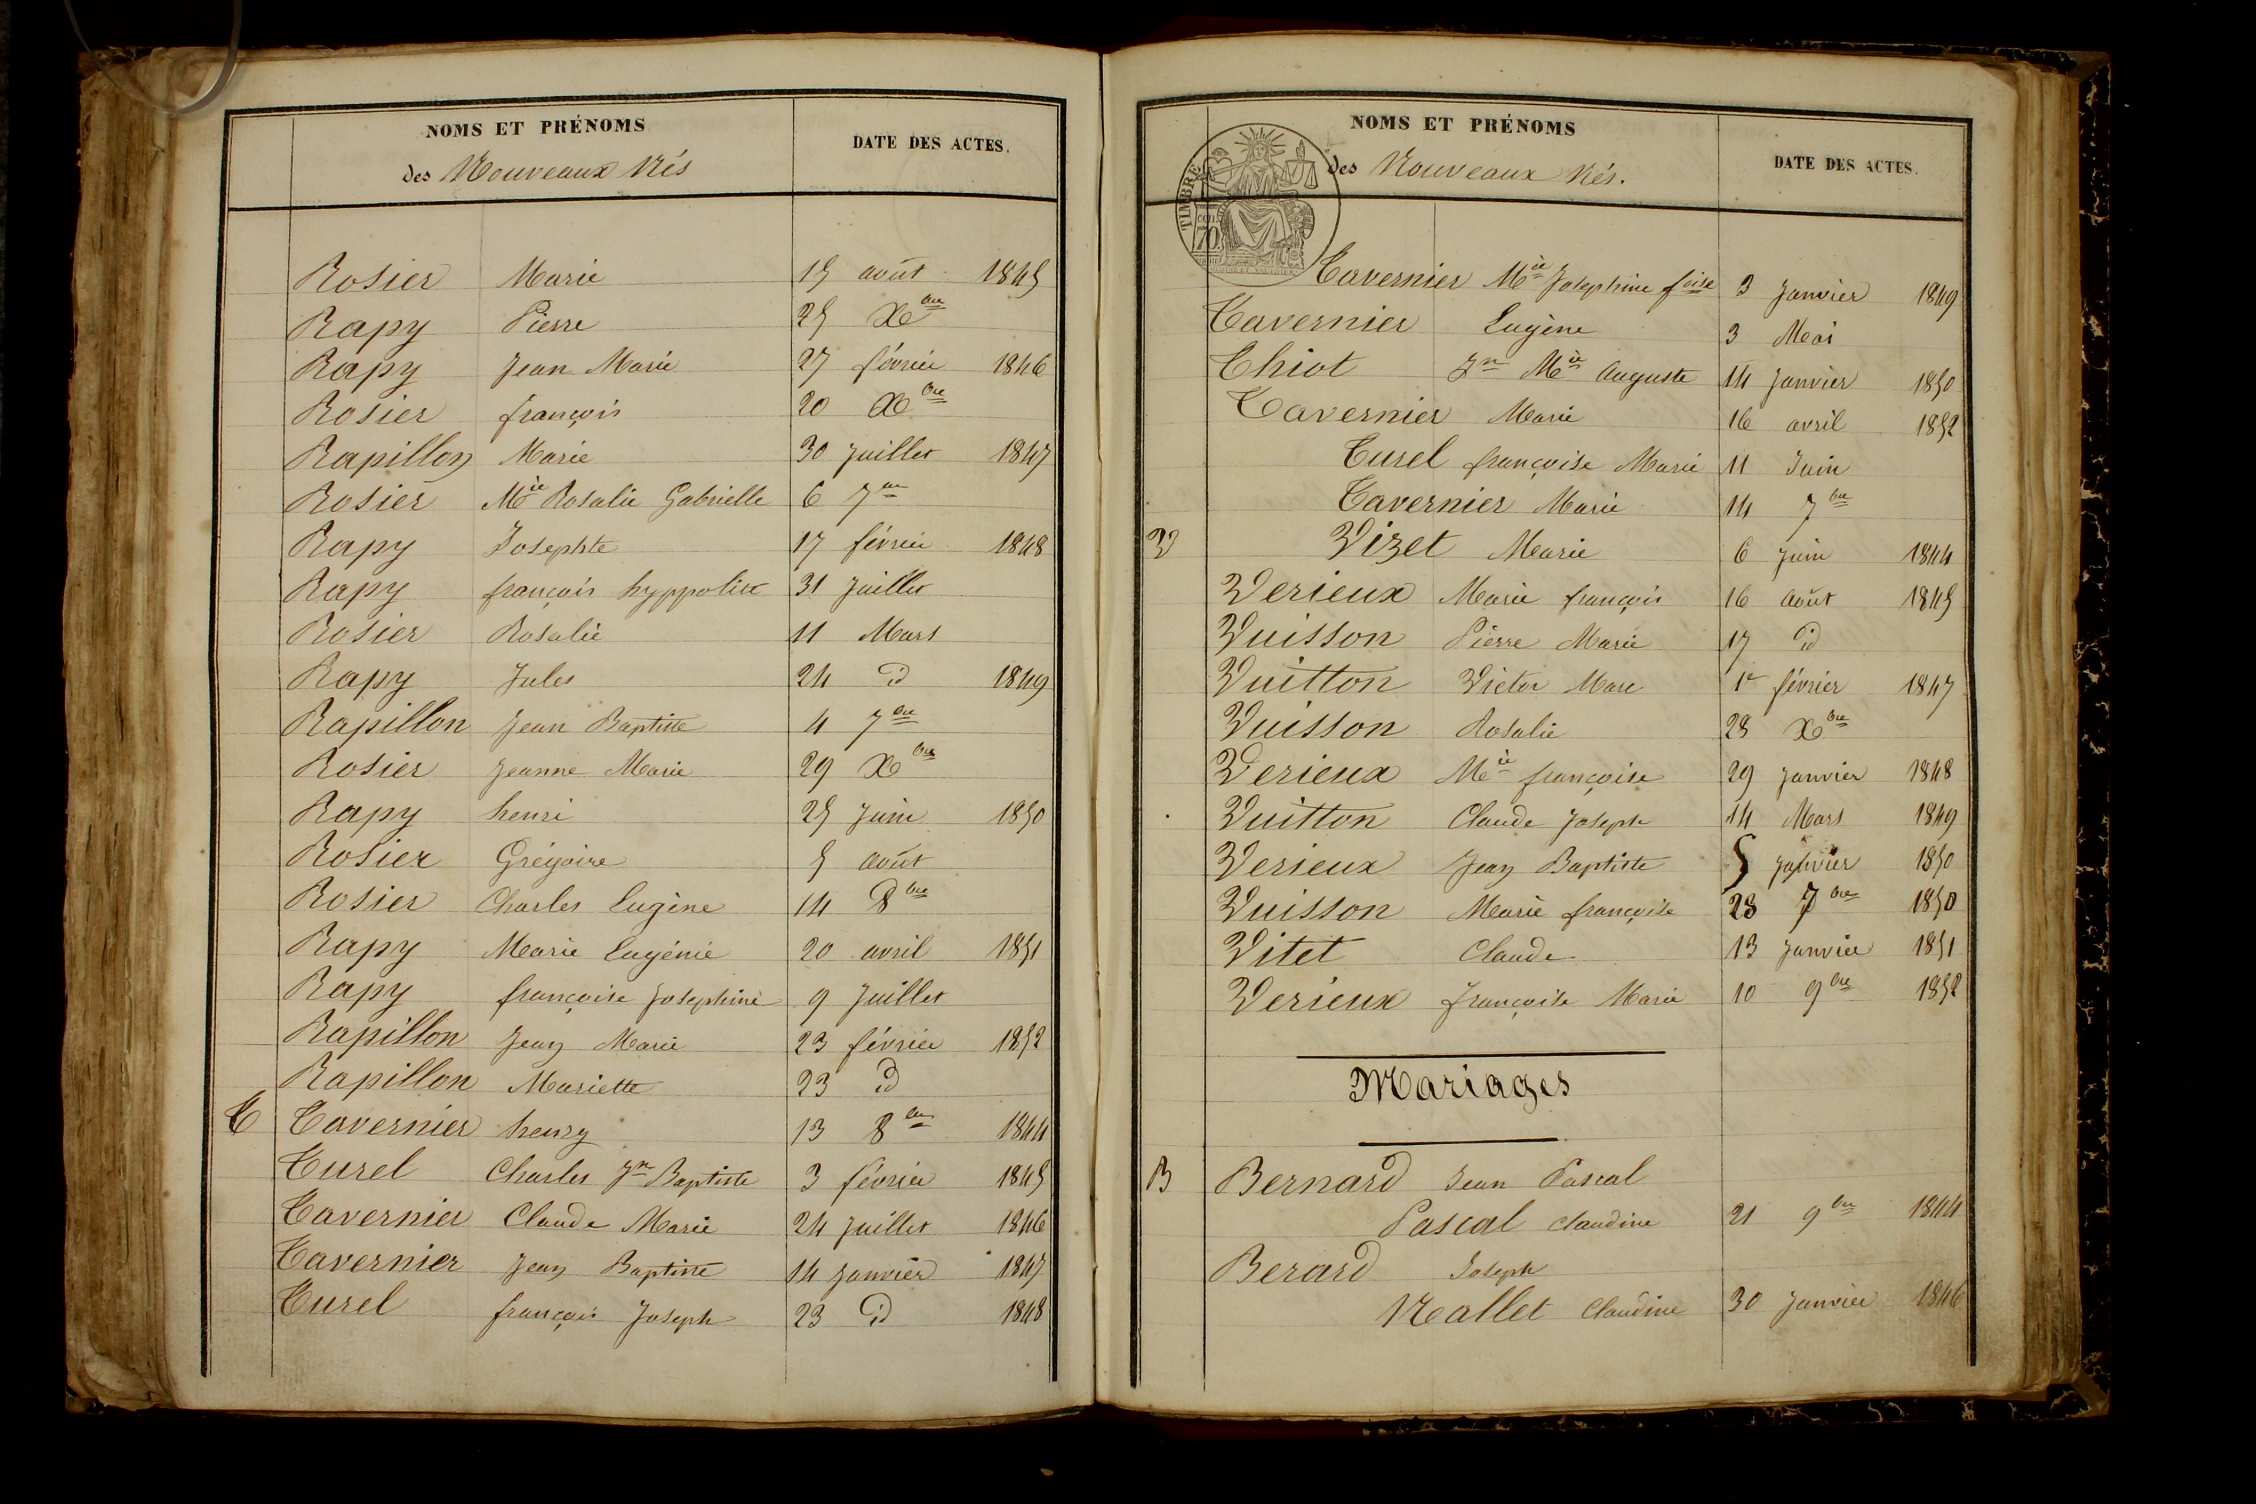 NOMS ET PRÉNOMS
des Nouveaux Nés
DATE DES ACTES.
Rosier Marie 15 août 1845
Rapy Pierre 25 Xbre
Rapy Jean Marie 27 février 1846
Rosier françois 20 Xbre
Rapillon Marie 30 Juillet 1847
Rosier Mie Rosalie Gabrielle 6 7bre
Rapy Josephte 17 février 1848
Rapy françois hyppolite 31 Juillet
Rosier Rosalie 11 Mars
Rapy Jules 24 id 1849
Rapillon Jean Baptiste 4 7bre
Rosier Jeanne Marie 29 Xbre
Rapy henri 25 Juin 1850
Rosier Grégoire 5 août
Rosier Charles Eugène 14 8bre
Rapy Marie Eugénie 20 avril 1851
Rapy françoise Josephine 9 Juillet
Rapillon Jean Marie 23 février 1852
Rapillon Mariette 23 id
T Tavernier henry 13 8bre 1844
Turel Charles Jn Baptiste 3 février 1845
Tavernier Claude Marie 24 Juillet 1846
Tavernier Jean Baptiste 14 Janvier 1847
Turel françois Joseph 23 id 1848
NOMS ET PRÉNOMS
des Nouveaux Nés.
DATE DES ACTES.
TIMBRE
70
Tavernier Mie Josephine foise 3 Janvier 1849
Tavernier Eugène 3 Mai
Thiot Jn Mie Auguste 14 Janvier 1850
Tavernier Marie 16 avril 1852
Turel françoise Marie 11 Juin
Tavernier Marie 14 7bre
V Vizet Marie 6 Juin 1844
Verieux Marie françois 16 Août 1845
Vuisson Pierre Marie 17 id
Vuitton Victor Marc 1er février 1847
Vuisson Rosalie 28 Xbre
Verieux Mie françoise 29 Janvier 1848
Vuitton Claude Joseph 14 Mars 1849
Verieux Jean Baptiste 5 Janvier 1850
Vuisson Marie françoise 28 7bre 1850
Vitet Claude 13 Janvier 1851
Verieux françoise Marie 10 9bre 1852
Mariages
B Bernard Jean Pascal
Pascal Claudine 21 9bre 1844
Berard Joseph
Mallet Claudine 30 Janvier 1846